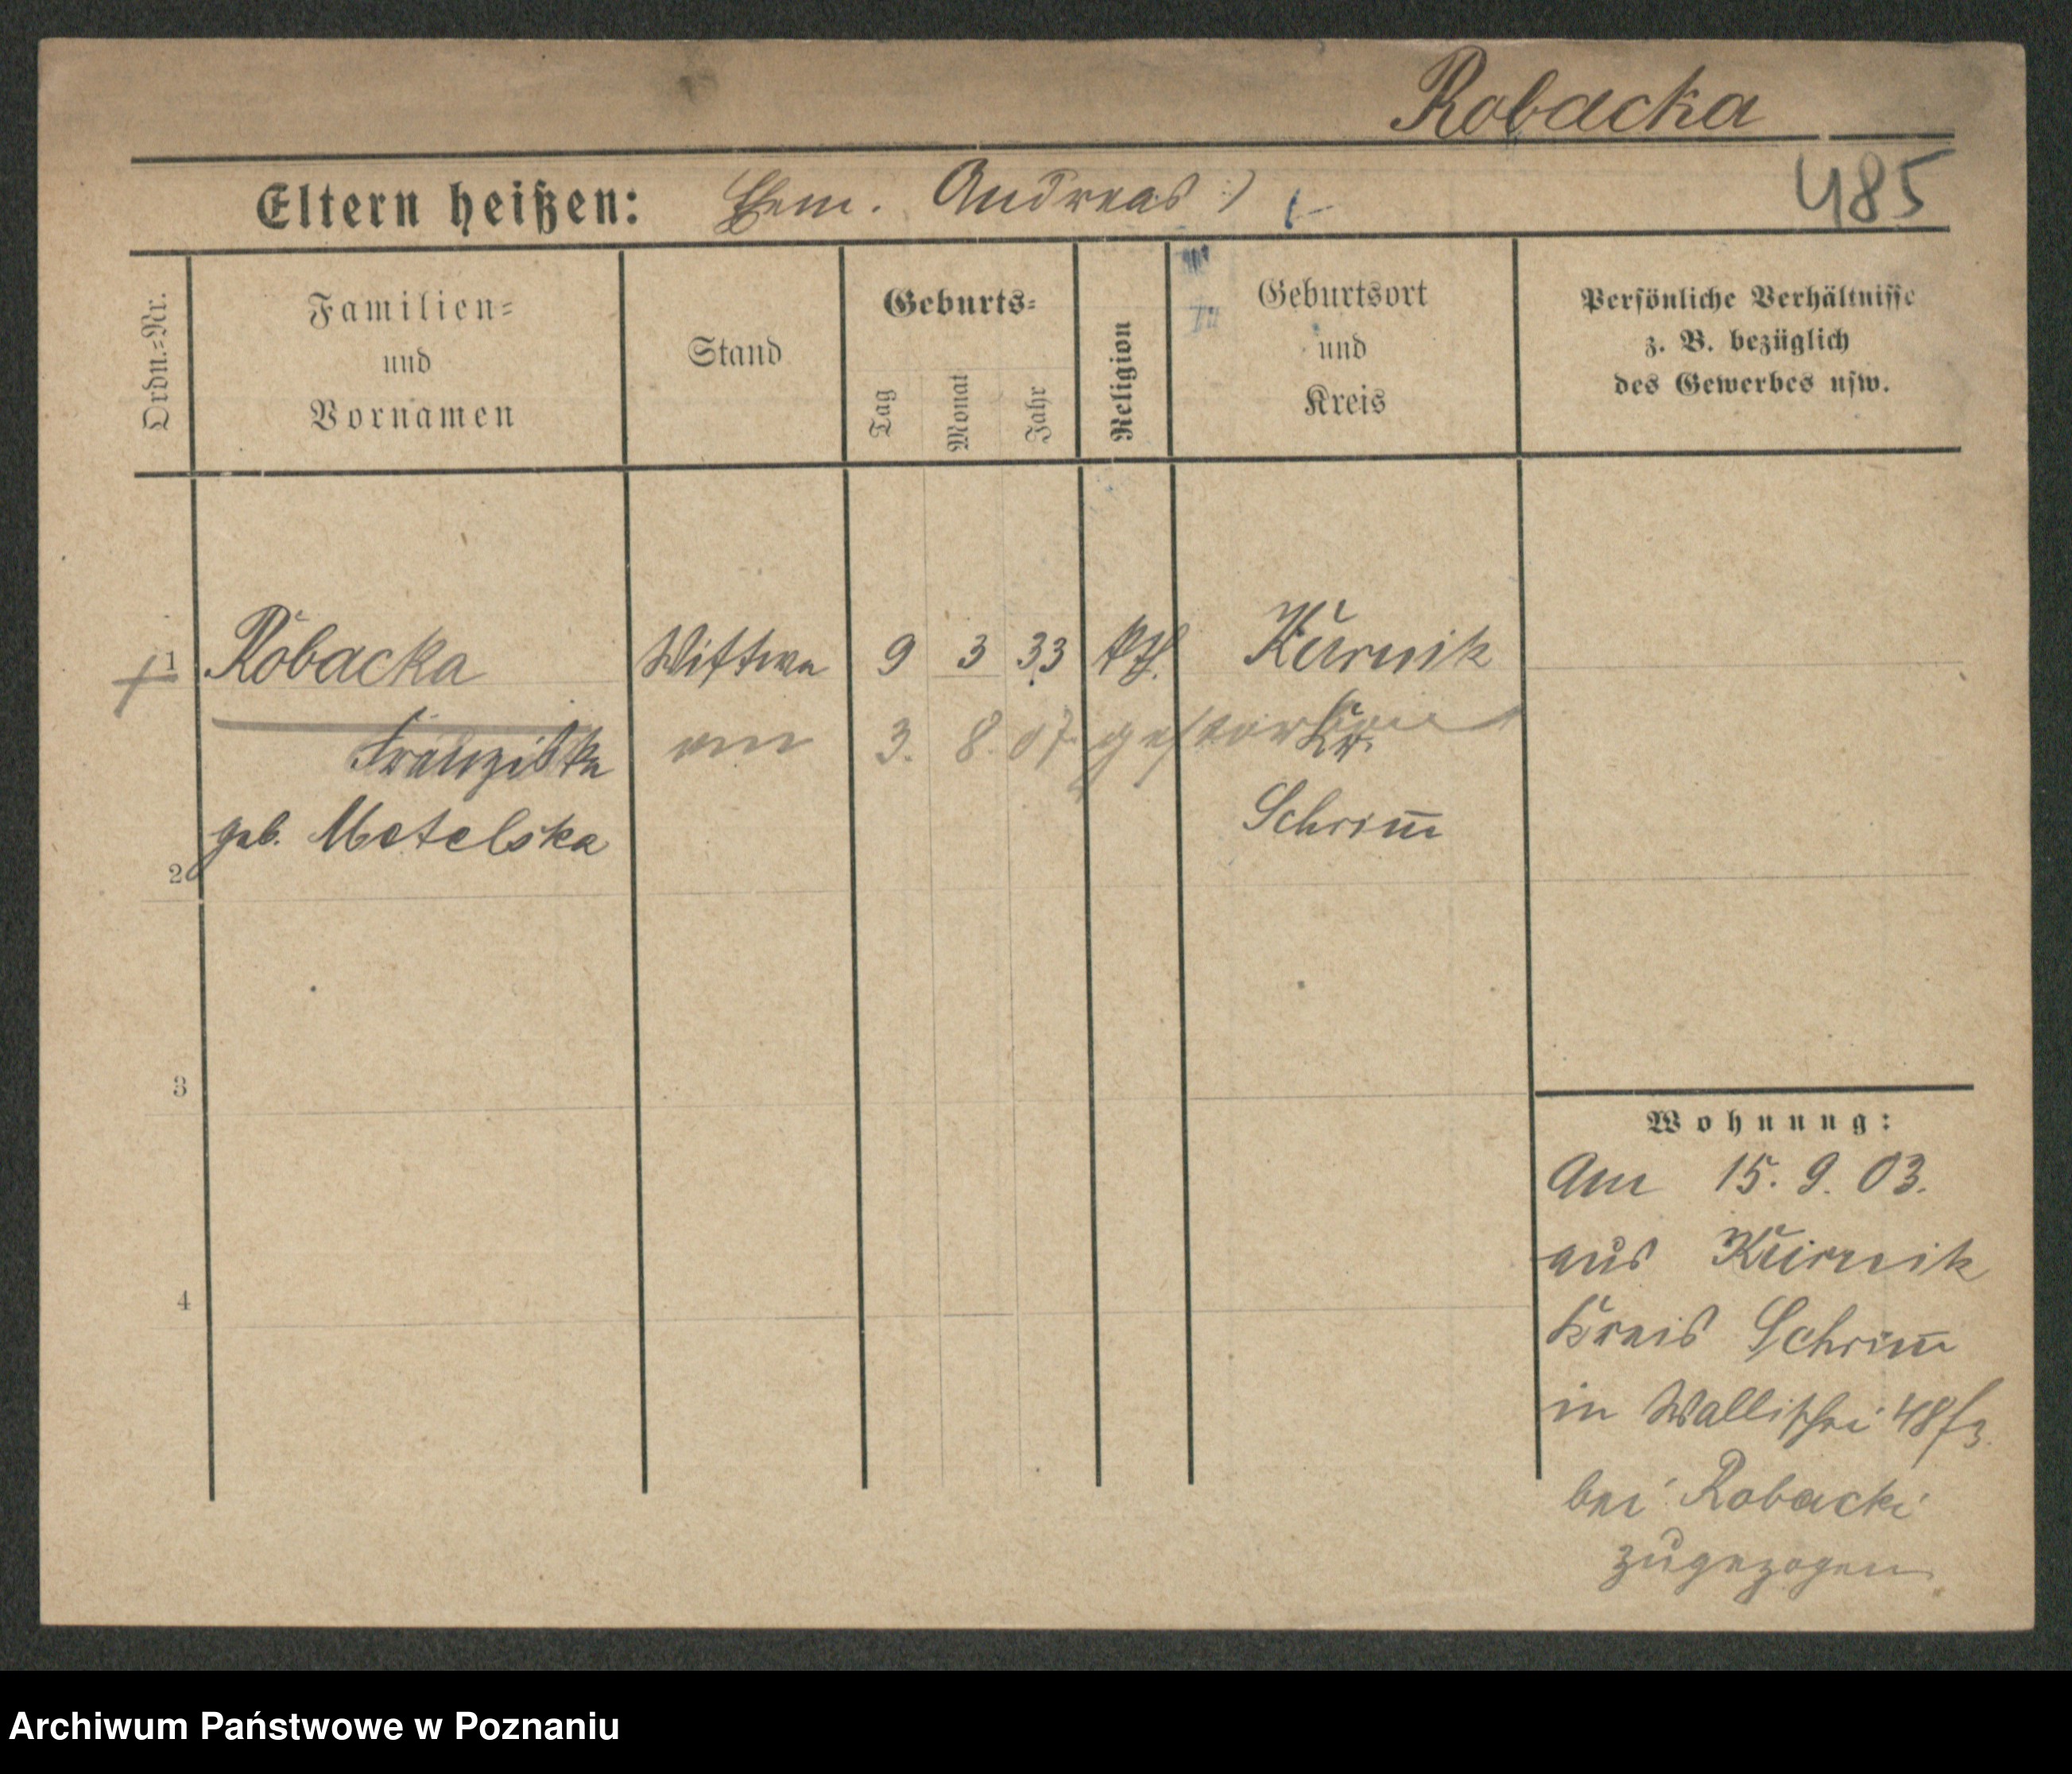 Robacka
485
Eltern heißen: Ehem. Andreas :)
Ordn.=Nr.
Familien=
und
Vornamen
Stand
Geburts=
Tag
Monat
Jahr
Religion
Geburtsort
und
Kreis
Persönliche Verhältnisse
z. B. bezüglich
des Gewerbes usw.
1 Robacka Wittwe 9 3 33 kth. Kurnik
Franziska am 3. 8. 07 gestorben Kr.
geb. Metelska Schrim̅
2
3
4
Wohnung:
Am 15. 9. 03.
aus Kurnik
Kreis Schrim̅
in Wallischei 48/3.
bei Robacki
zugezogen
Archiwum Państwowe w Poznaniu